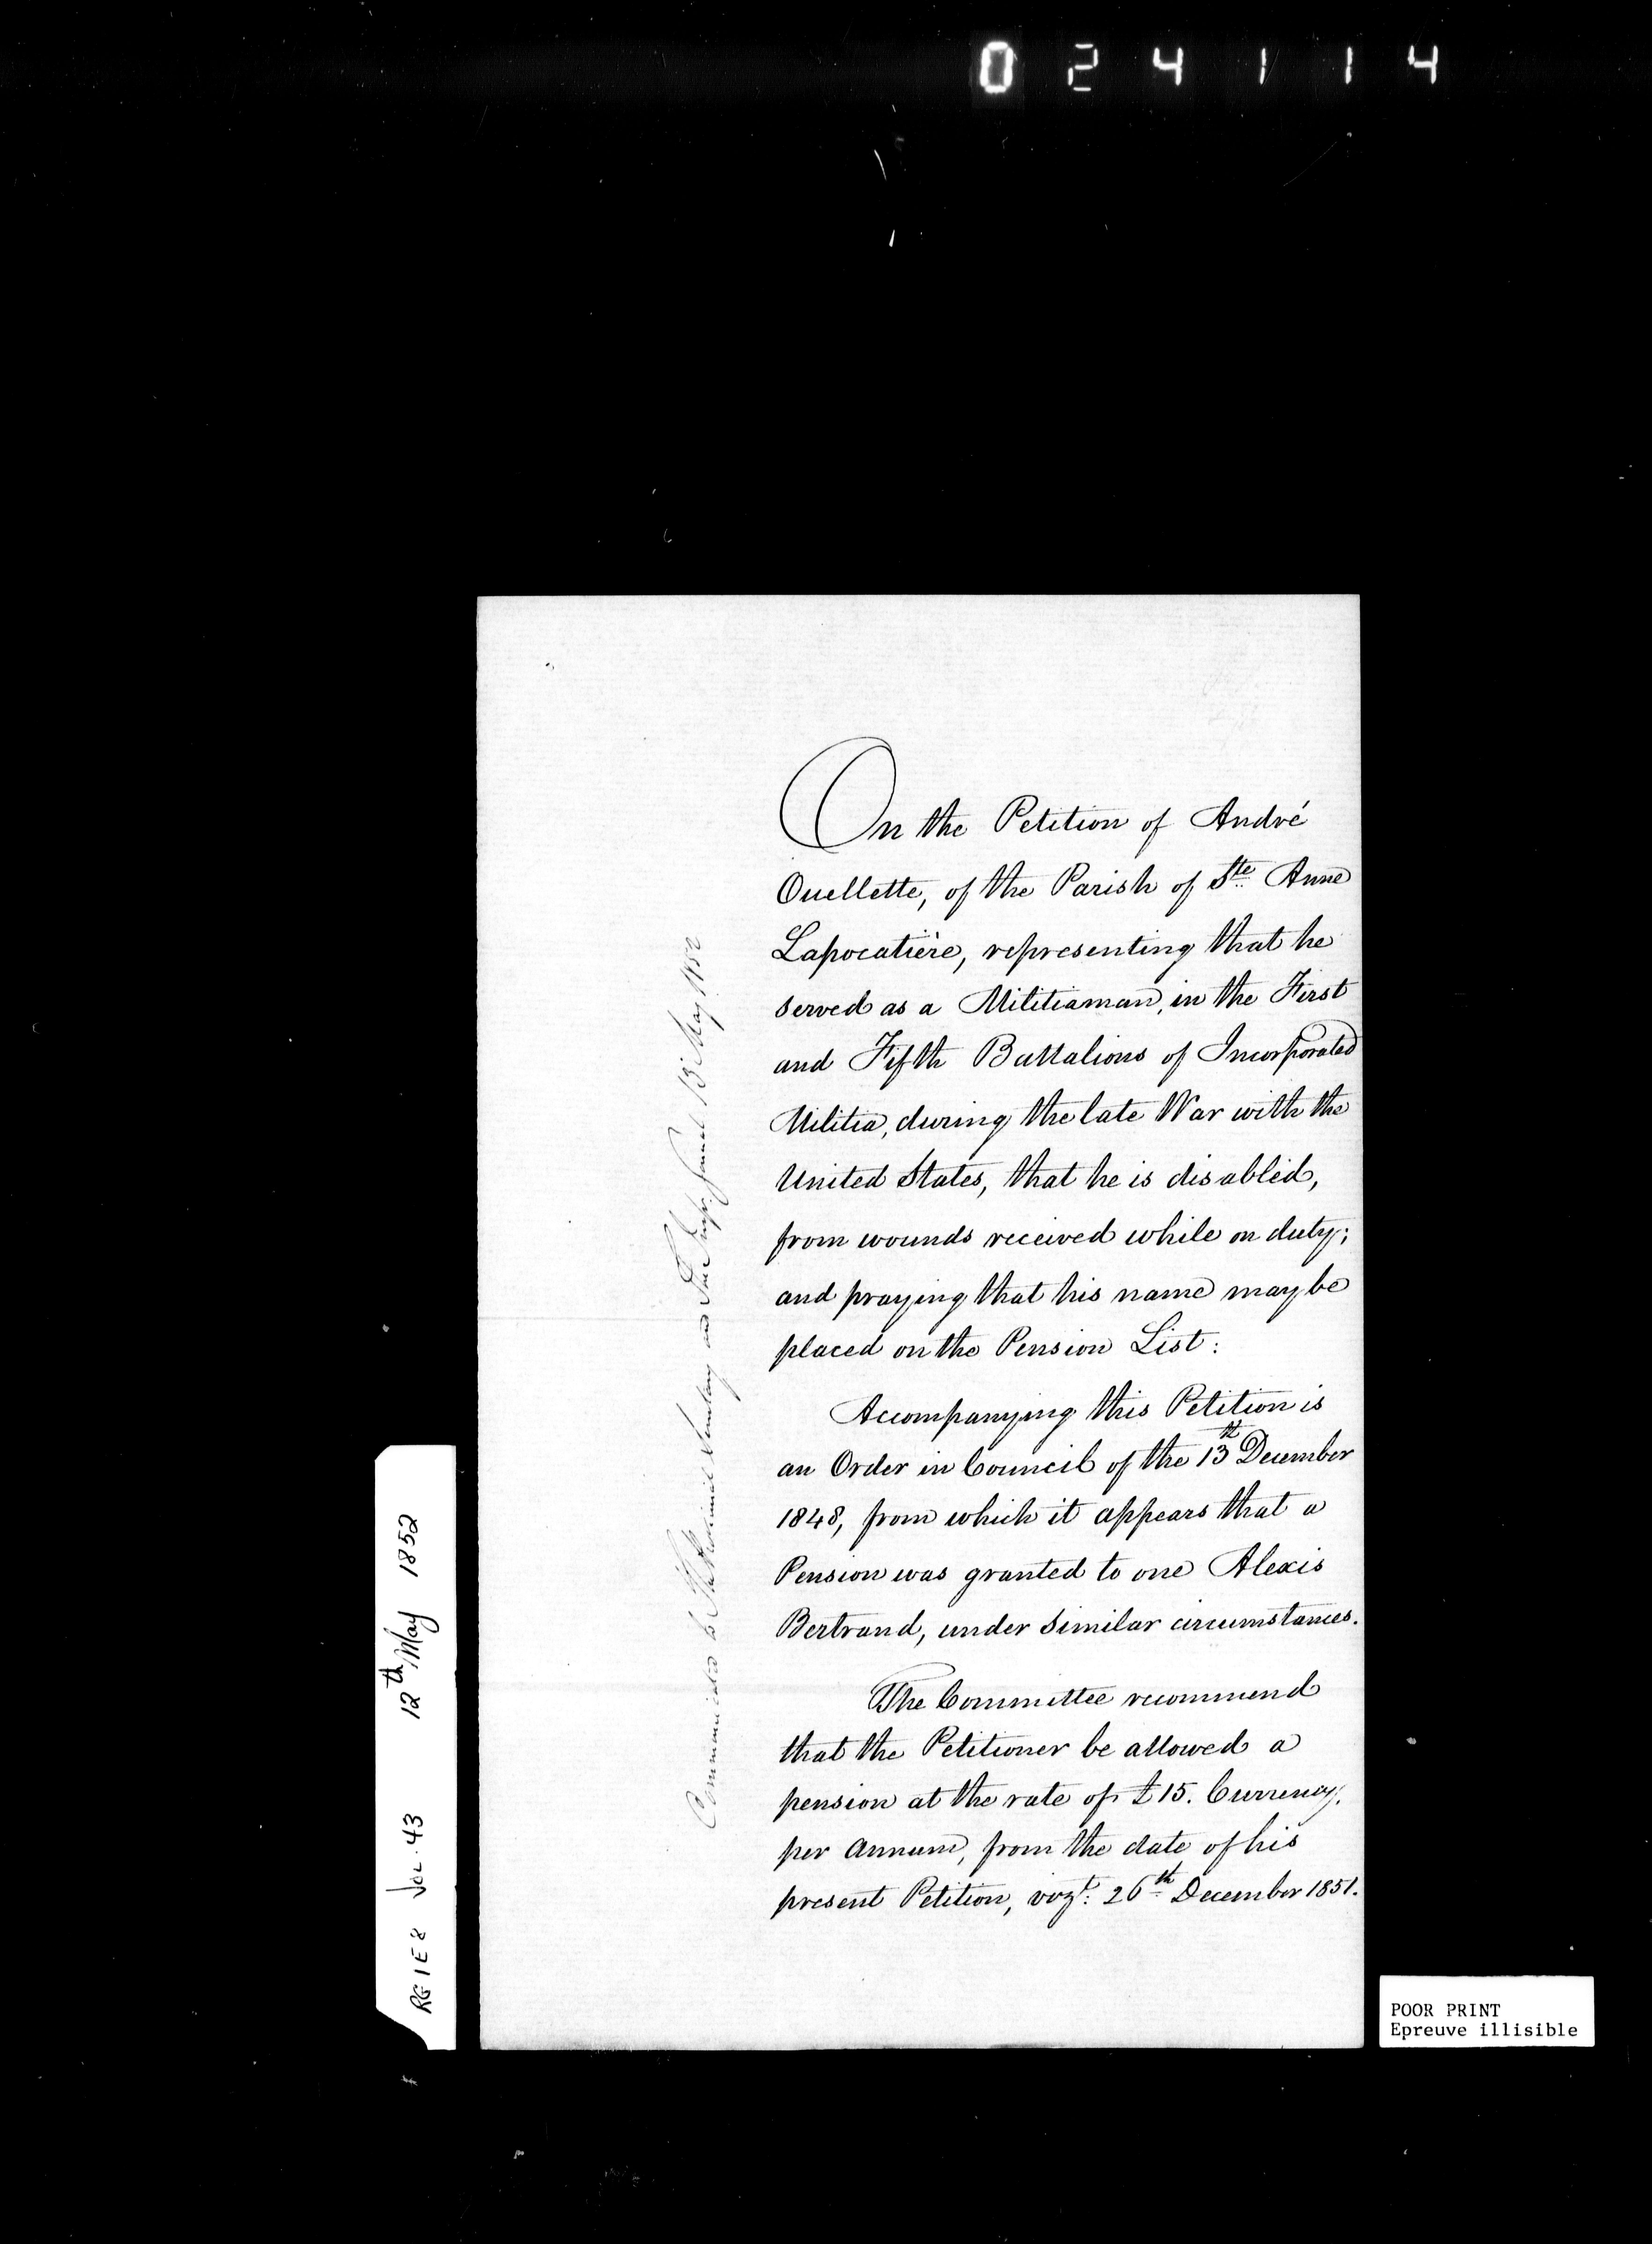 024114
On the Petition of André
Ouellette, of the Parish of Ste. Anne
Lapocatière, representing that he
served as a Militiaman, in the First
and Fifth Battalions of Incorporated
Militia, during the late War with the
United States, that he is disabled,
from wounds received while on duty;
and praying that his name may be
placed on the Pension List:
Accompanying this Petition is
an Order in Council of the 13th December
1848, from which it appears that a
Pension was granted to one Alexis
Bertrand, under similar circumstances.
The Committee recommend
that the Petitioner be allowed a
pension at the rate of £15. Currency,
per annum, from the date of his
present Petition, vizt: 26th December 1851.
Communicated to The Provincial Secretary and The 13 May 1852
RG 1 E 8 Vol. 43 12th May 1852
POOR PRINT
Epreuve illisible